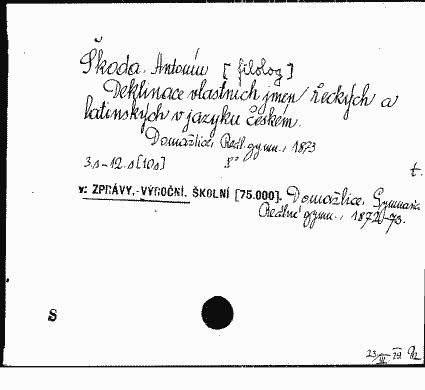 Škoda, Antonín [filolog]
Deklinace vlastních jmen řeckých a
latinských v jazyku českém.
Domažlice, Reál. gymn., 1873
3.s-12.s [10s] 8°
t.
v: ZPRÁVY, VÝROČNÍ, ŠKOLNÍ [75.000]. Domažlice, Gymnasia
Reálné gymn., 1872-73.
S
23